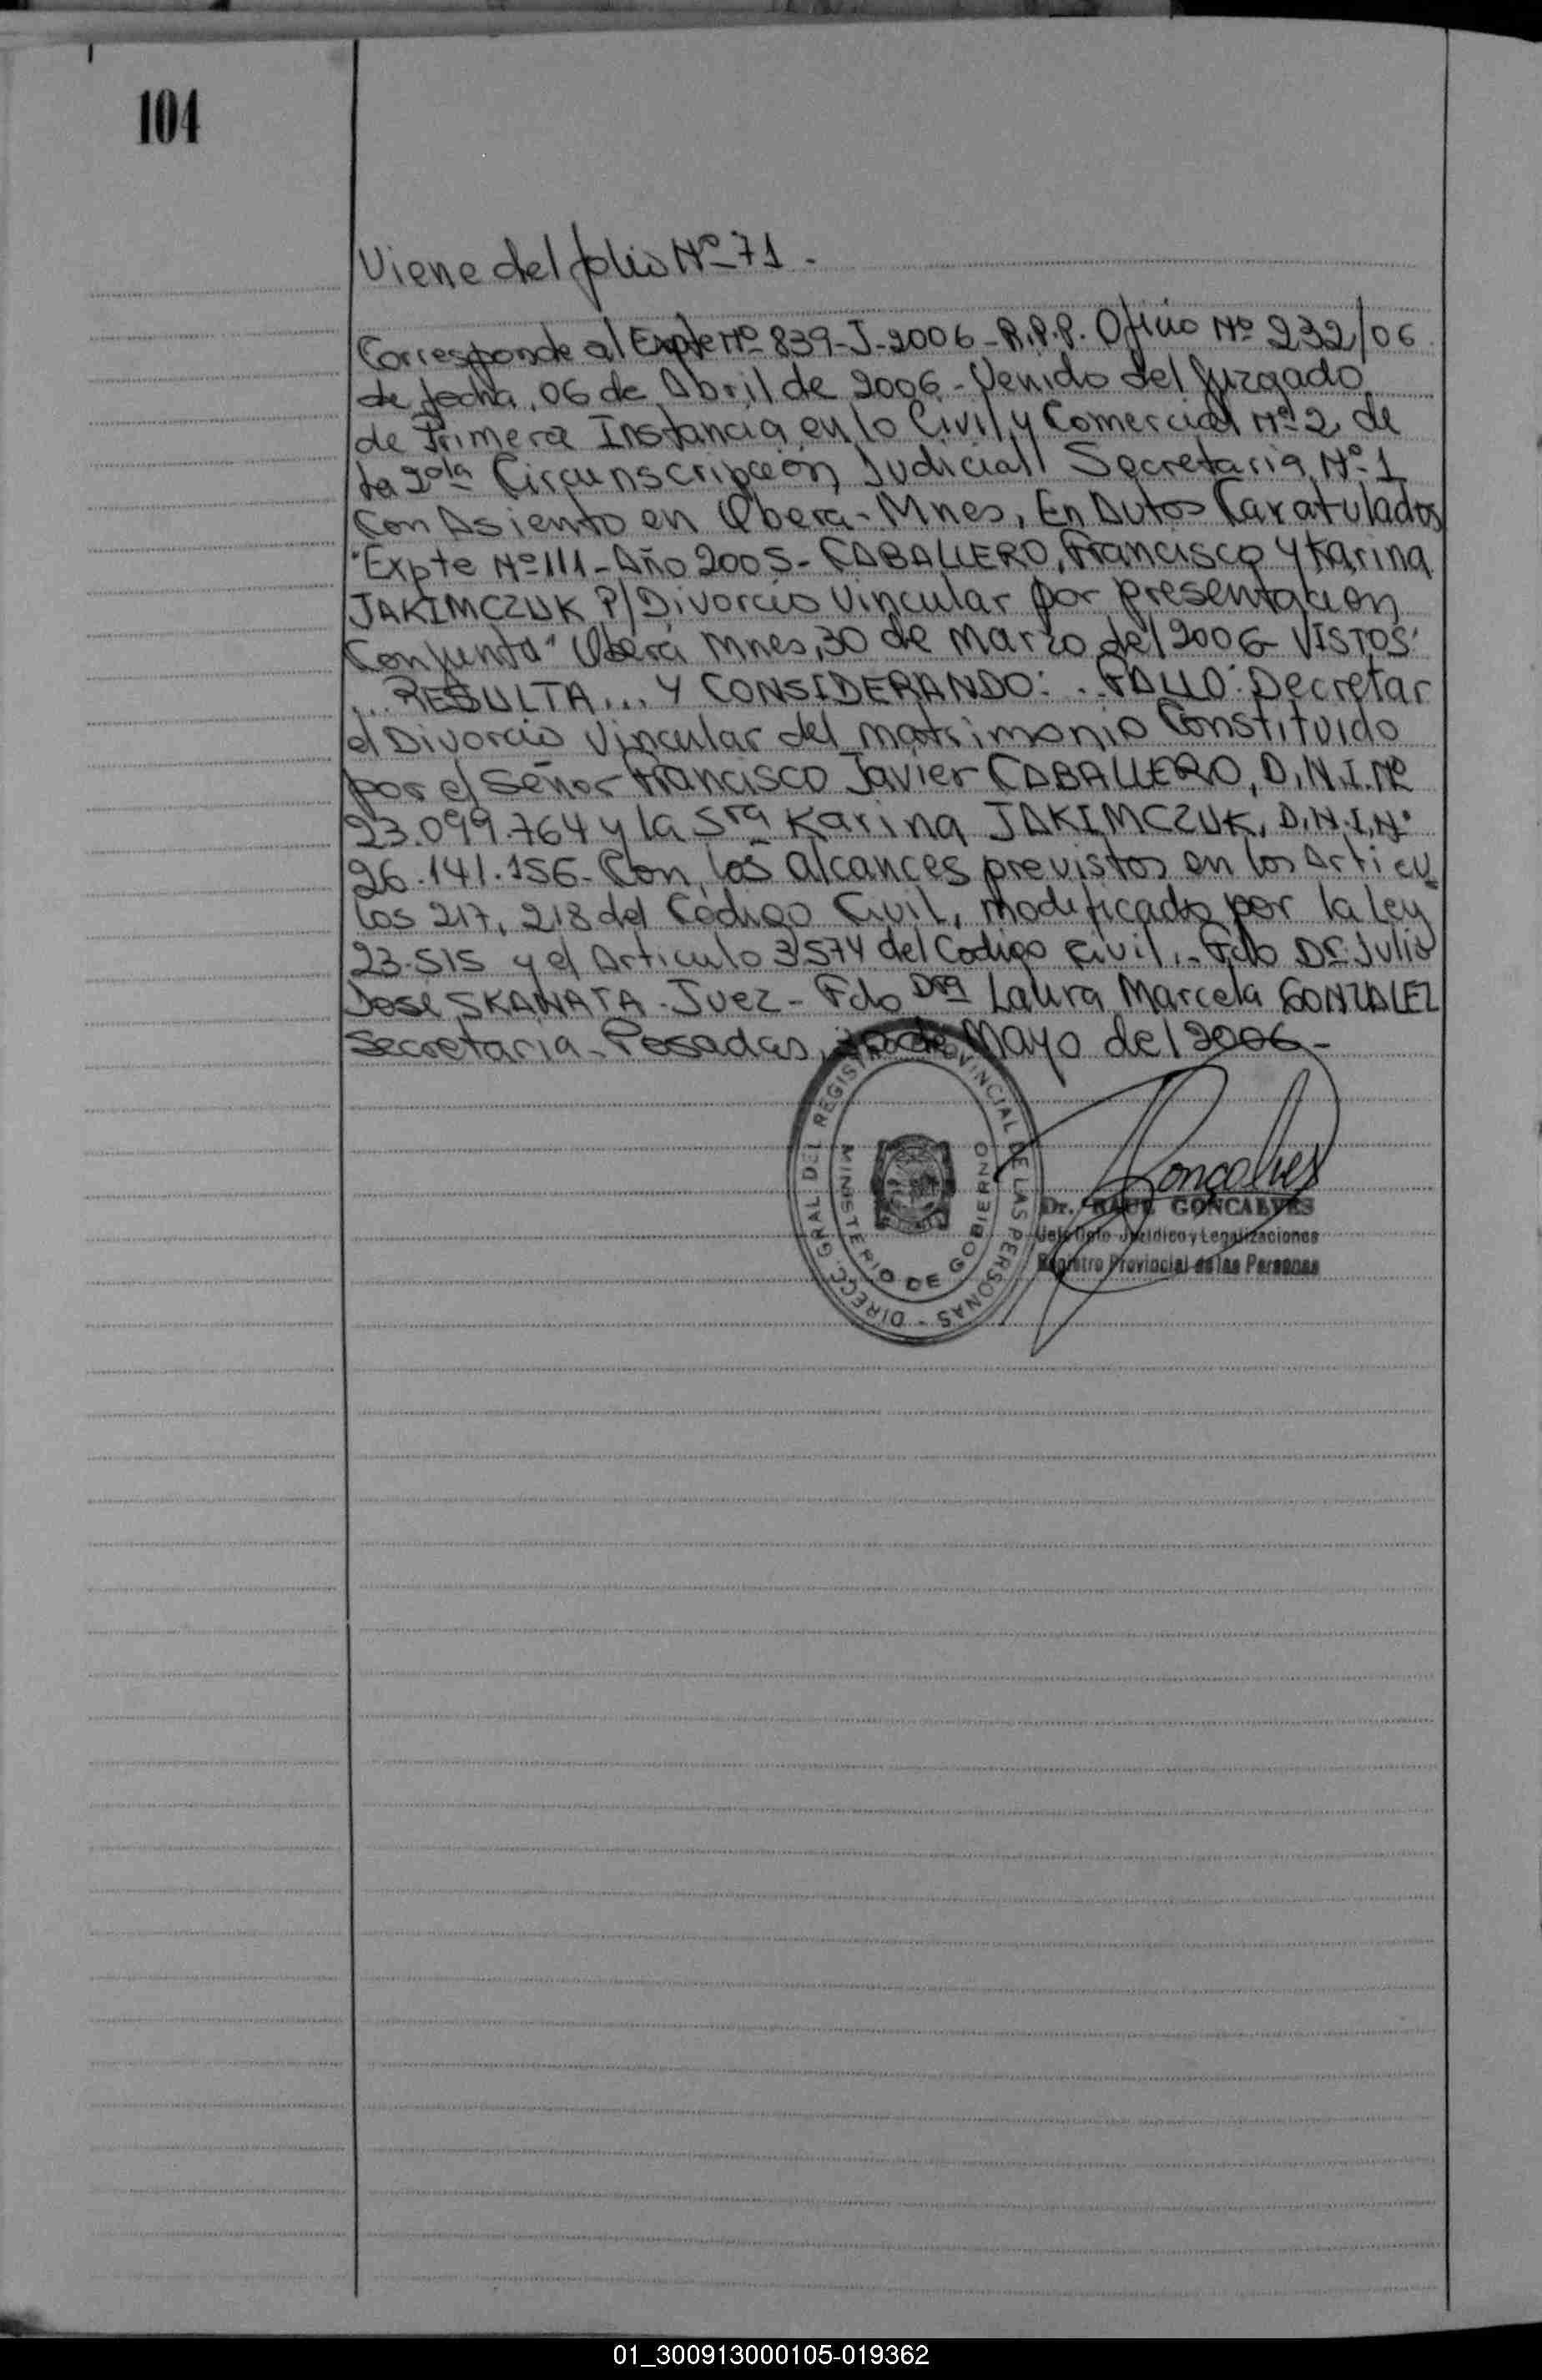 104
Viene del folio Nº 71 -
Corresponde al Expte Nº 839-J-2006-R.P.P. Oficio Nº 232/06
de fecha, 06 de Abril de 2006 - Venido del Juzgado
de Primera Instancia en lo Civil y Comercial Nº 2 de
la 2da Circunscripción Judicial Secretaria Nº 1
Con Asiento en Obera - Mnes, En Autos Caratulados
"Expte Nº 111 - Año 2005 - CABALLERO, Francisco y Karina
JAKIMCZUK P/Divorcio Vincular por presentacion
Conjunta" Oberá Mnes, 30 de Marzo del 2006 VISTOS:
...RESULTA... Y CONSIDERANDO: .. FALLO: Decretar
el Divorcio Vincular del matrimonio Constituido
por el Señor Francisco Javier CABALLERO, D.N.I. Nº
23.099.764 y la Sra Karina JAKIMCZUK, D.N.I. Nº
26.141.156 - Con los alcances previstos en los Articu
los 217, 218 del Código Civil, modificado por la Ley
23.515 y el Articulo 3574 del Codigo Civil. - Fdo Dr. Julio
José SKANATA - Juez - Fdo Dra Laura Marcela GONZALEZ
Secretaria - Posadas, de Mayo del 2006 -
DIRECC. GRAL DEL REGISTRO PROVINCIAL DE LAS PERSONAS -
MINISTERIO DE GOBIERNO
Goncalves
Dr. RAUL GONCALVES
Jefe Dpto Jurídico y Legalizaciones
Registro Provincial de las Personas
01_300913000105-019362